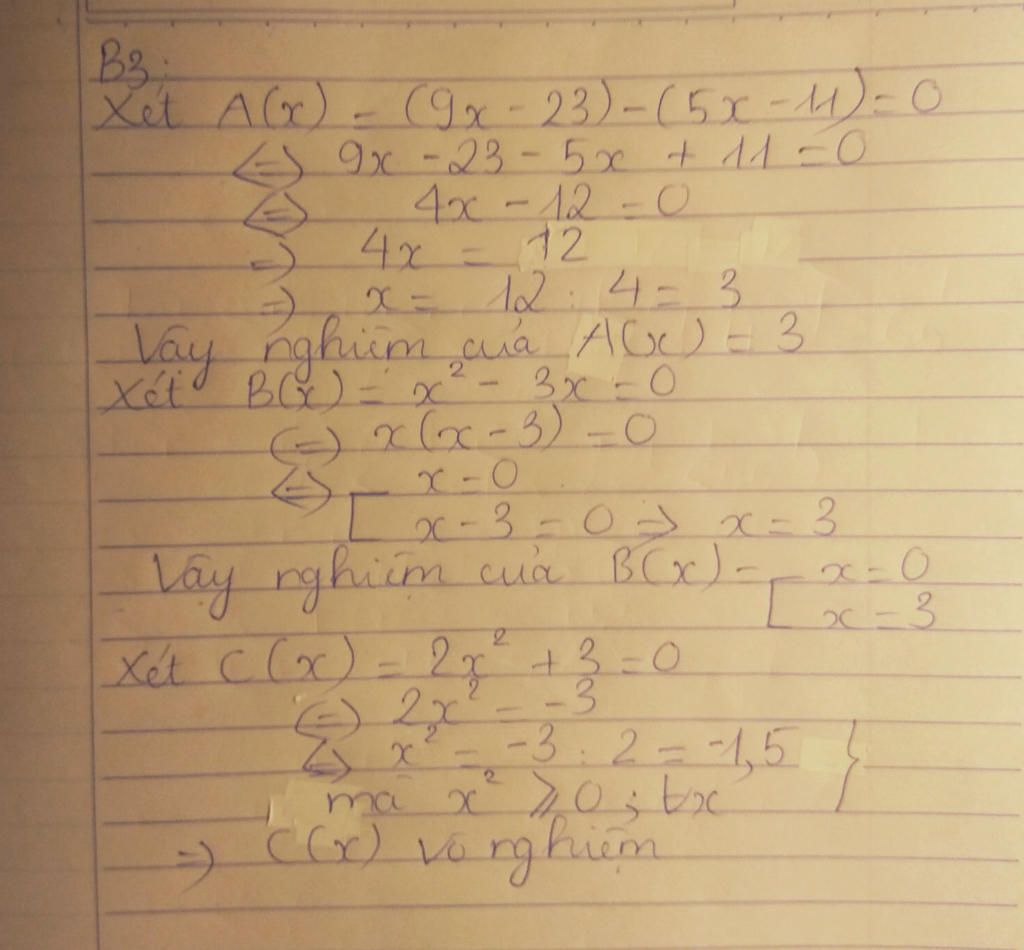 B3:
Xét A(x) = (9x - 23) - (5x - 11) = 0
<=> 9x - 23 - 5x + 11 = 0
<=> 4x - 12 = 0
=> 4x = 12
=> x = 12 : 4 = 3
Vậy nghiệm của A(x) = 3
Xét B(x) = x² - 3x = 0
<=> x(x - 3) = 0
<=> [ x = 0
x - 3 = 0 => x = 3
Vậy nghiệm của B(x) = [ x = 0
x = 3
Xét C(x) = 2x² + 3 = 0
<=> 2x² = -3
<=> x² = -3 : 2 = -1,5 }
mà x² ⩾ 0 ; ∀x
=> C(x) vô nghiệm